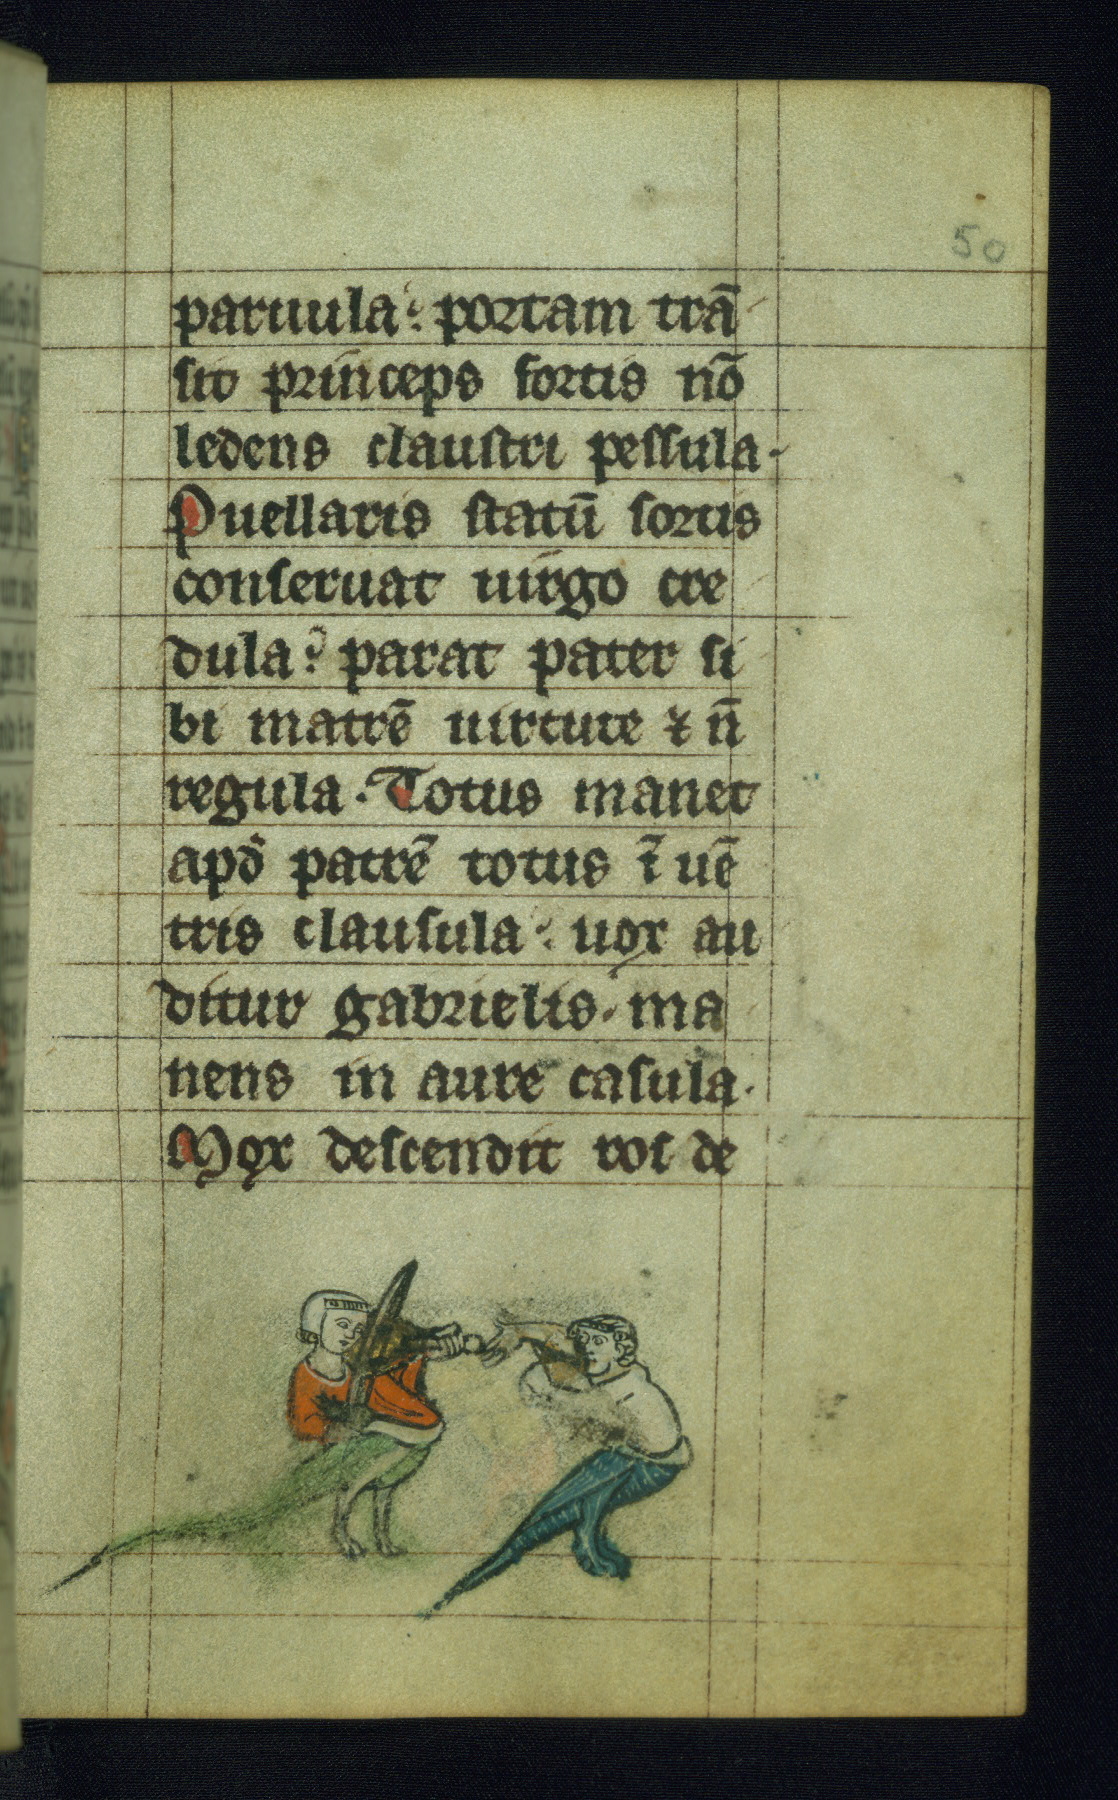 50
paruula: portam trā
sit princeps fortis nō
ledens claustri pessula.
Puellaris statū sortis
conseruat uirgo cre
dula: parat pater si
bi matrē uirtute & n̄
regula. Totus manet
apđ patrē totus ī uē
tris clausula: uox au
ditur gabrielis. ma
nens in aure casula.
Mox descendit ros de